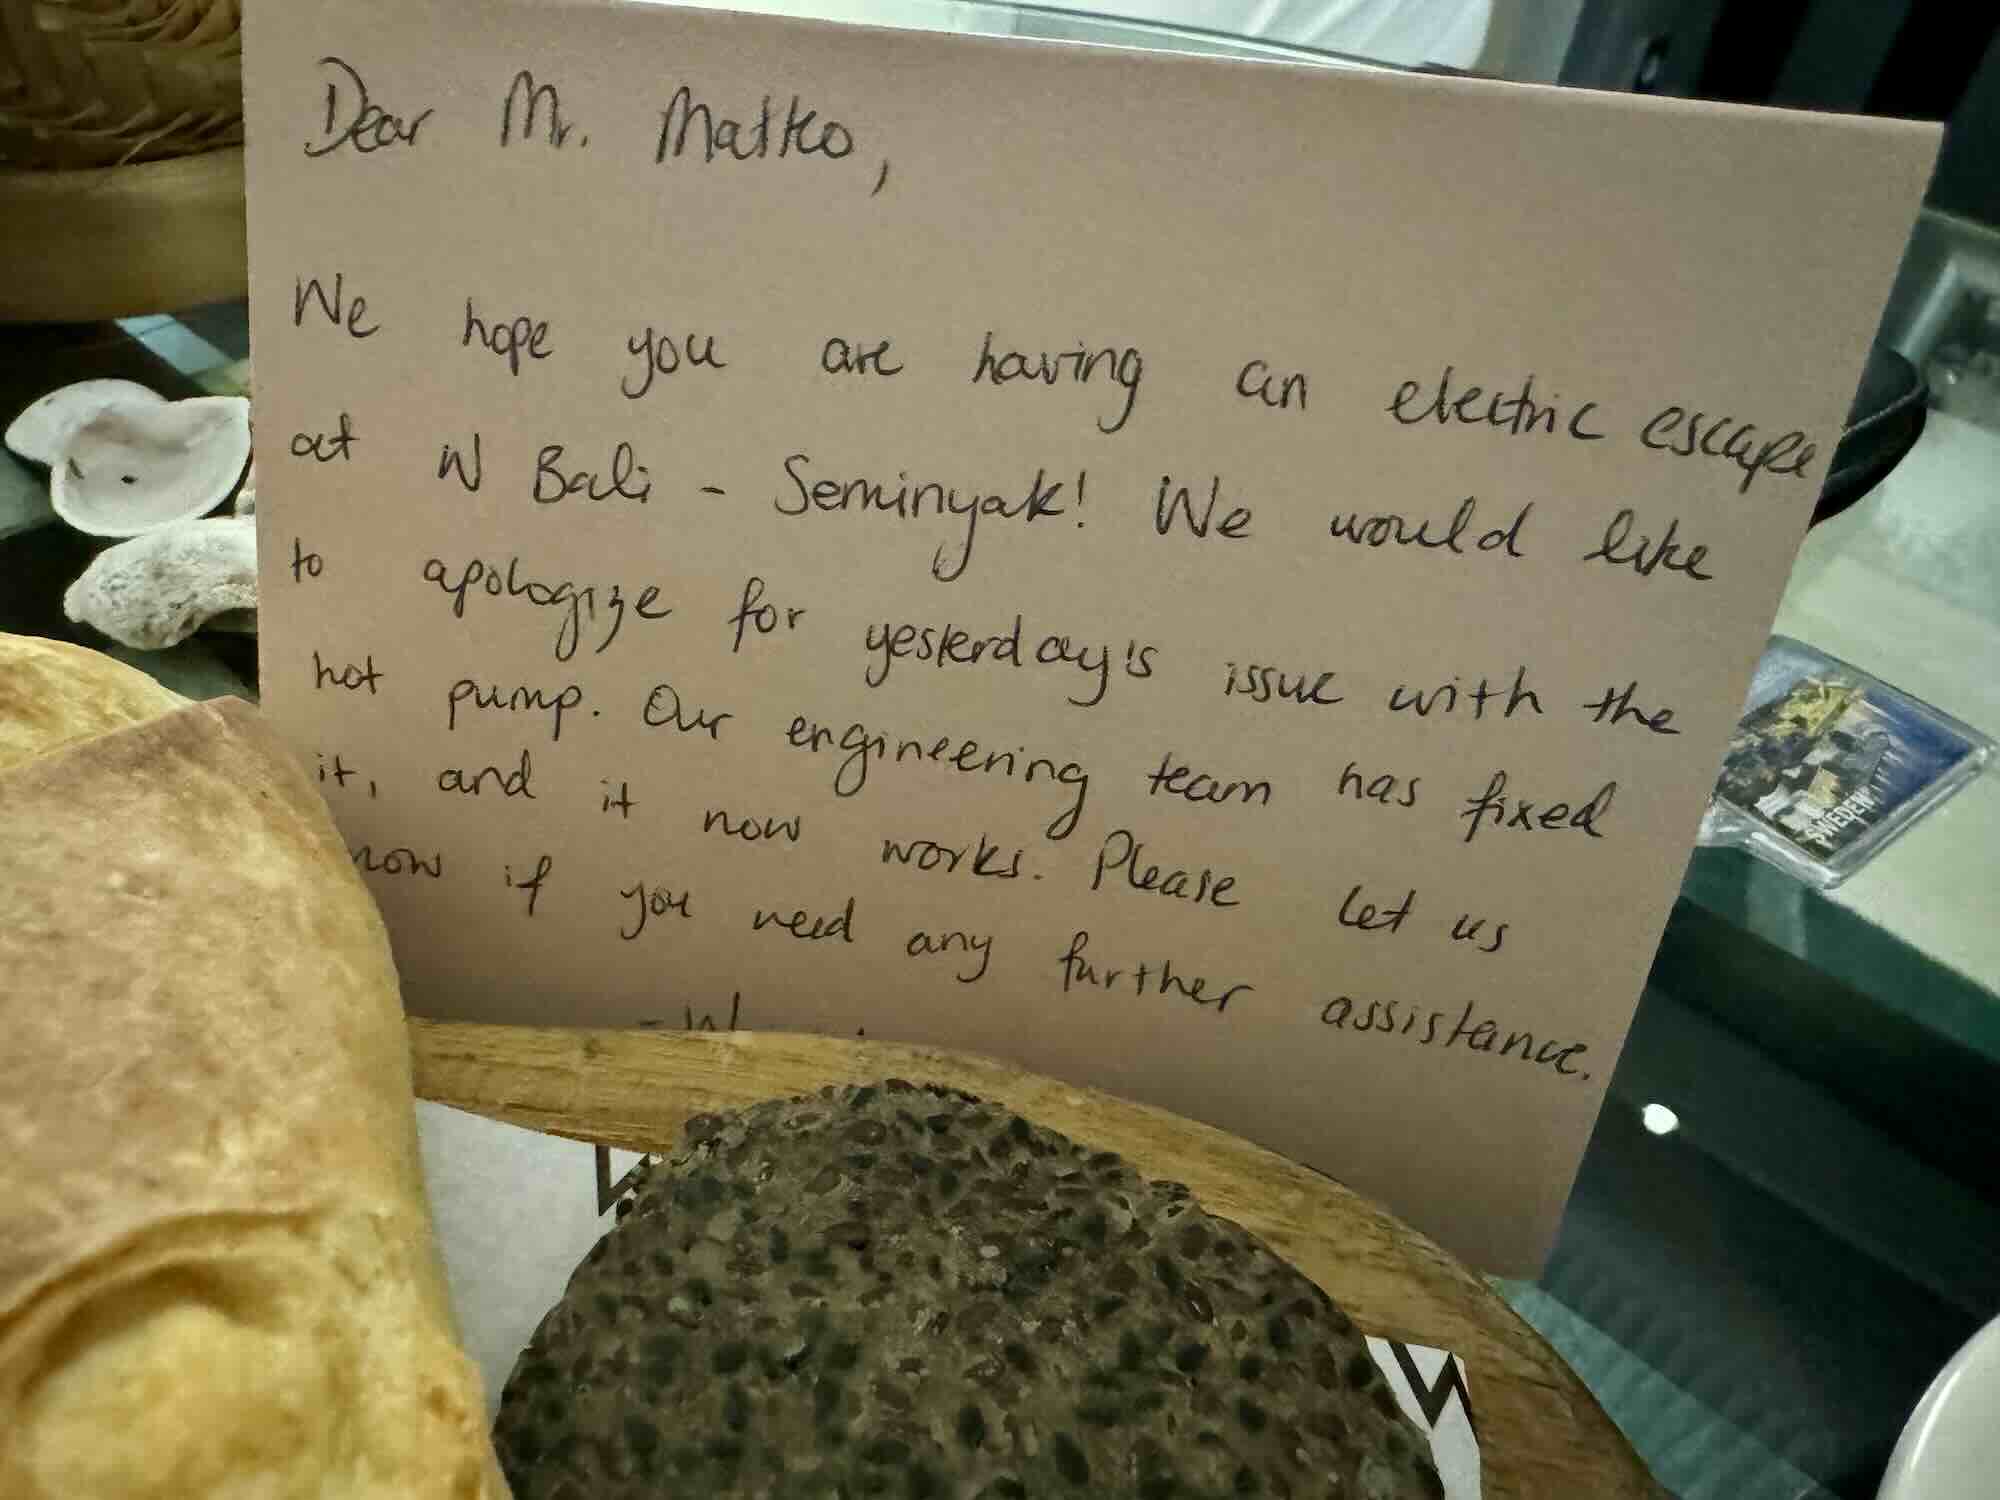 Dear Mr. Matko,
We hope you are having an electric escape
at W Bali - Seminyak! We would like
to apologize for yesterday's issue with the
hot pump. Our engineering team has fixed
it, and it now works. Please let us
now if you need any further assistance.
- W
SWEDEN
W
W